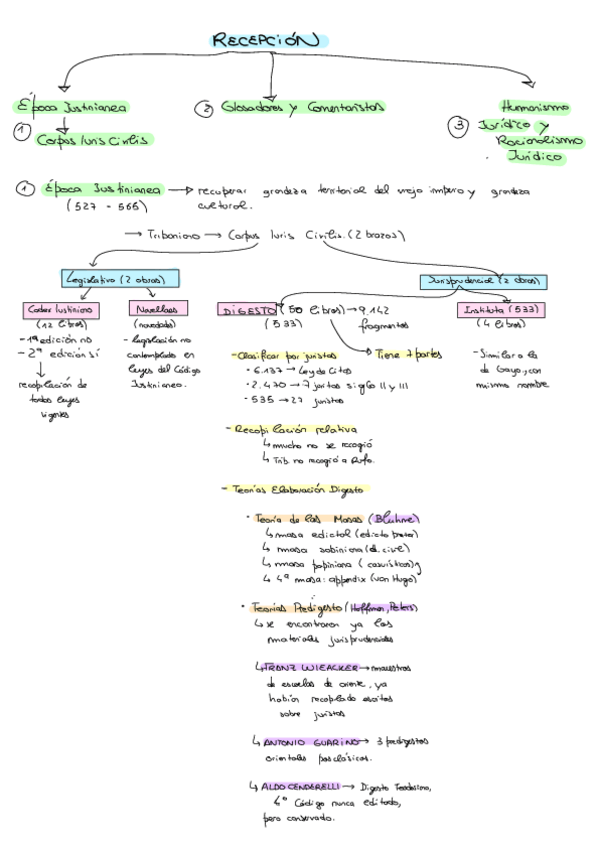 RECEPCIÓN
Época Justinianea
1
Corpus Iuris Civilis
2 Glosadores y Comentaristas
Humanismo
3 Jurídico y
Racionalismo
Jurídico
1 Época Justinianea → recuperar grandeza territorial del viejo imperio y grandeza
(527 - 566) cultural.
→ Triboniano → Corpus Iuris Civilis. (2 brazos)
Legislativo (2 obras)
Jurisprudencial (2 obras)
Codex Iustiniano
(12 libros)
- 1ª edición no
- 2ª edición sí
↓
recopilación de
todas leyes
vigentes
Novellaes
(novedades)
- legislación no
contemplada en
leyes del Código
Justinianeo.
DIGESTO (50 libros) → 9.142
(533) fragmentos
→ Tiene 7 partes
Instituta (533)
(4 libros)
- Similar a la
de Gayo, con
mismo nombre
- Clasificar por juristas
· 6.137 → Ley de Citas
· 2.470 → 7 juristas siglo II y III
· 535 → 27 juristas
- Recopilación relativa
↳ mucho no se recogió
↳ Trib. no recogió a Rufo.
- Teorías Elaboración Digesto
· Teoría de las Masas (Bluhme)
↳ masa edictal (edicto pretor)
↳ masa sabiniana (d. civil)
↳ masa papiniana (casuísticas) y
↳ 4ª masa: appendix (van Hugo)
· Teorías Predigesto (Hoffman, Peters)
↳ se encontraron ya los
materiales jurisprudenciales
↳ FRANZ WIEACKER → maestros
de escuelas de oriente, ya
habían recopilado escritos
sobre juristas
↳ ANTONIO GUARINO → 3 predigestos
orientales posclásicos.
↳ ALDO CENDERELLI → Digesto Teodosiano,
4º Código nunca editado,
pero conservado.